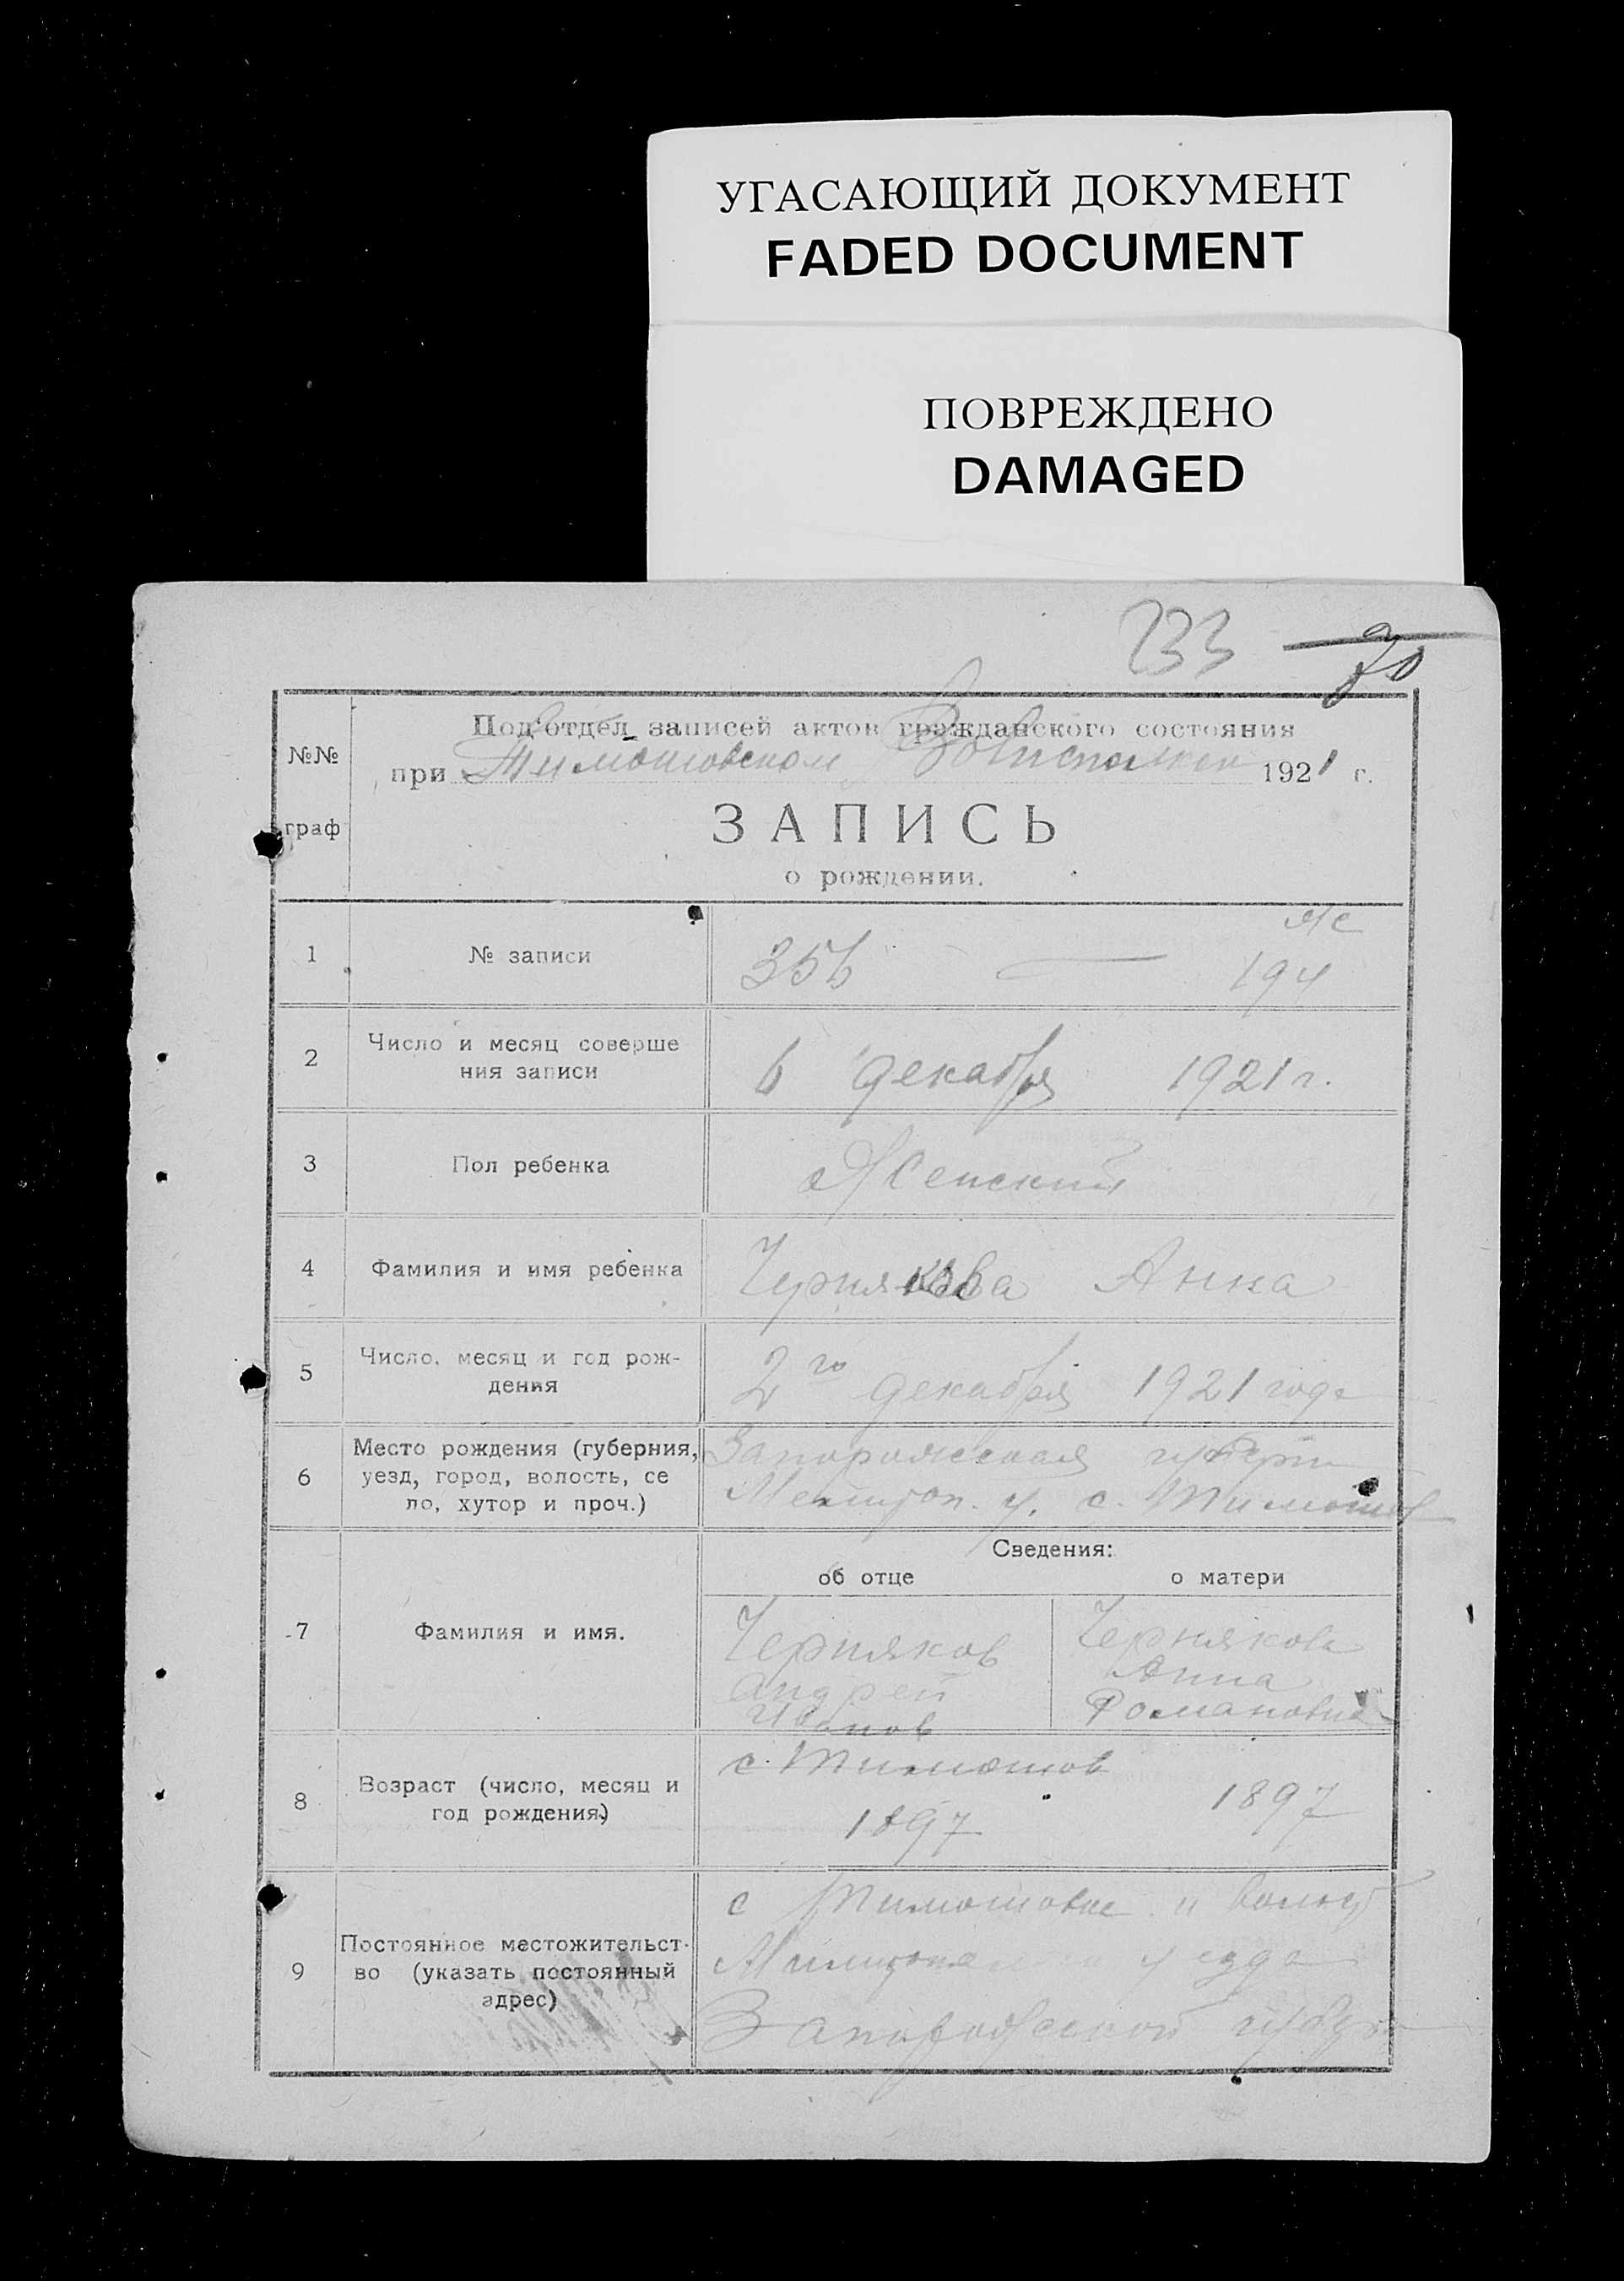 УГАСАЮЩИЙ ДОКУМЕНТ
FADED DOCUMENT
ПОВРЕЖДЕНО
DAMAGED
233
30
Под'отдел записей актов гражданского состояния
при Тимошовском Волисполком 1921 г.
№№
граф
ЗАПИСЬ
о рождении.
1 № записи 356 — 194
Ж
2 Число и месяц соверше
ния записи 6 декабря 1921 г.
3 Пол ребенка Женский
4 Фамилия и имя ребенка Чернякова Анна
5 Число, месяц и год рож-
дения 2го декабря 1921 года
6 Место рождения (губерния,
уезд, город, волость, се
ло, хутор и проч.)
Запорожская губерн
Мелитоп. у. с. Тимошов
Сведения:
об отце о матери
7 Фамилия и имя.
Черняков
Андрей
Иванов
Чернякова
Анна
Романовна
8 Возраст (число, месяц и
год рождения)
с. Тимошов
1897 1897
9 Постоянное местожительст-
во (указать постоянный
адрес)
с Тимошовке и волост
уезда
Запорожской губерн